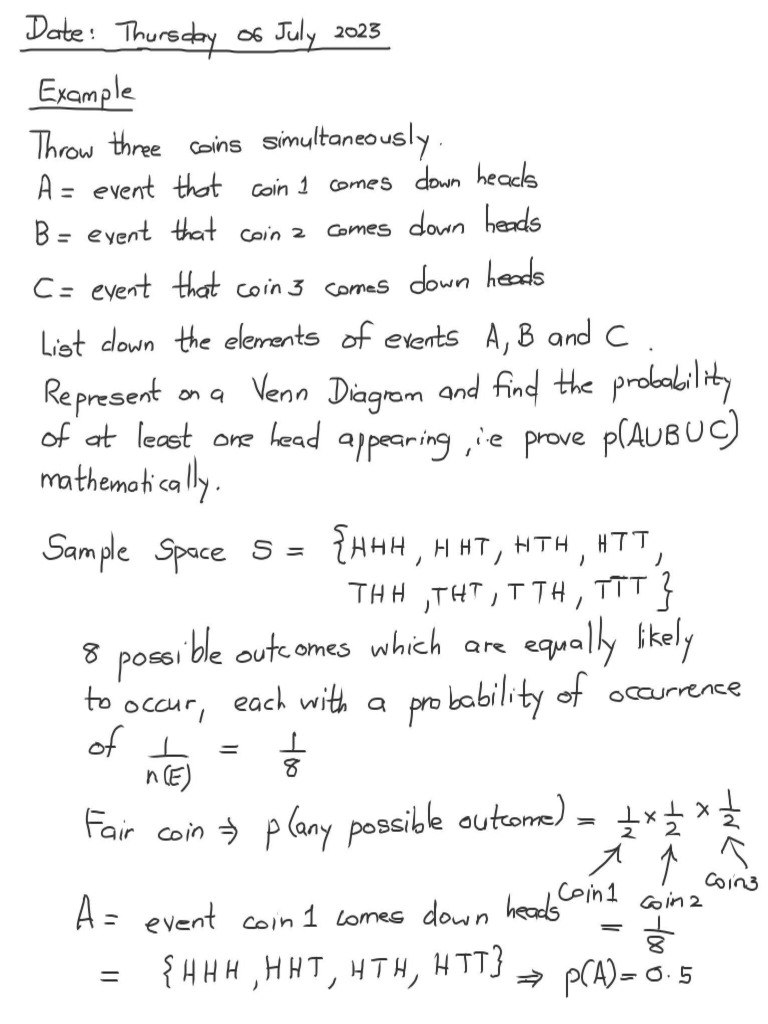 Date: Thursday 06 July 2023
Example
Throw three coins simultaneously.
A = event that coin 1 comes down heads
B = event that coin 2 comes down heads
C = event that coin 3 comes down heads
List down the elements of events A, B and C.
Represent on a Venn Diagram and find the probability
of at least one head appearing, i.e prove p(AUBUC)
mathematically.
Sample Space S = {HHH, HHT, HTH, HTT,
THH, THT, TTH, TTT}
8 possible outcomes which are equally likely
to occur, each with a probability of occurrence
of 1/n(E) = 1/8
Fair coin ⇒ p(any possible outcome) = 1/2 × 1/2 × 1/2
coin1 coin2 coin3
= 1/8
A = event coin 1 comes down heads
= {HHH, HHT, HTH, HTT} ⇒ p(A) = 0.5